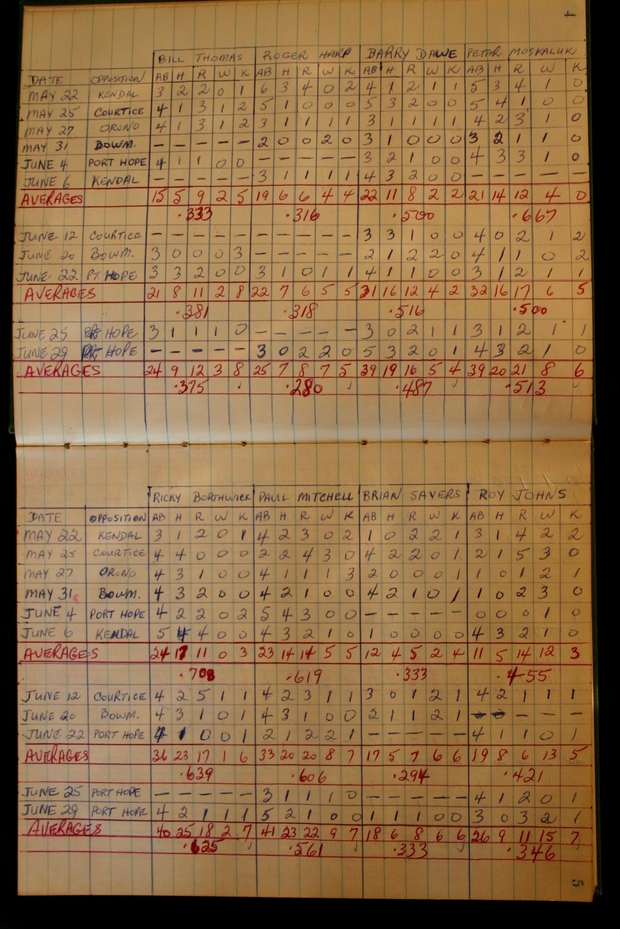 4
BILL THOMAS ROGER HARP BARRY DAWE PETER MOSKALUK
DATE OPPOSITION AB H R W K AB H R W K AB H R W K AB H R W K
MAY 22 KENDAL 3 2 2 0 1 6 3 4 0 2 4 1 2 1 1 5 3 4 1 0
MAY 25 COURTICE 4 1 3 1 2 5 1 0 0 0 5 3 2 0 0 5 4 1 0 0
MAY 27 ORONO 4 1 3 1 2 3 1 1 1 1 3 1 1 1 1 4 2 3 1 0
MAY 31 BOWM. - - - - - 2 0 0 2 0 3 1 0 0 0 3 2 1 1 0
JUNE 4 PORT HOPE 4 1 1 0 0 - - - - - 3 2 1 0 0 4 3 3 1 0
JUNE 6 KENDAL 3 1 1 1 1 4 3 2 0 0 - - - - -
AVERAGES 15 5 9 2 5 19 6 6 4 4 22 11 8 2 2 21 14 12 4 0
.333 .316 .500 .667
JUNE 12 COURTICE - - - - - - - - - - 3 3 1 0 0 4 0 2 1 2
JUNE 20 BOWM. 3 0 0 0 3 - - - - - 2 1 2 2 0 4 1 1 0 2
JUNE 22 PT. HOPE 3 3 2 0 0 3 1 0 1 1 4 1 1 0 0 3 1 2 1 1
AVERAGES 21 8 11 2 8 22 7 6 5 5 31 16 12 4 2 32 16 17 6 5
.381 .318 .516 .500
JUNE 25 HOPE 3 1 1 1 0 - - - - - 3 0 2 1 1 3 1 2 1 1
JUNE 29 HOPE - - - - - 3 0 2 2 0 5 3 2 0 1 4 3 2 1 0
AVERAGES 24 9 12 3 8 25 7 8 7 5 39 19 16 5 4 39 20 21 8 6
.375 .280 .487 .513
RICKY BORTHWICK PAUL MITCHELL BRIAN SAYERS ROY JOHNS
DATE OPPOSITION AB H R W K AB H R W K AB H R W K AB H R W K
MAY 22 KENDAL 3 1 2 0 1 4 2 3 0 2 1 0 2 2 1 3 1 4 2 2
MAY 25 COURTICE 4 4 0 0 0 2 2 4 3 0 4 2 2 0 1 2 1 5 3 0
MAY 27 ORONO 4 3 1 0 0 4 1 1 1 3 2 0 0 0 1 1 0 1 2 1
MAY 31 BOWM. 4 3 2 0 0 4 2 1 0 0 4 2 1 0 1 1 0 2 3 0
JUNE 4 PORT HOPE 4 2 2 0 2 5 4 3 0 0 - - - - - 0 0 0 1 0
JUNE 6 KENDAL 5 4 4 0 0 4 3 2 1 0 1 0 0 0 0 4 3 2 1 0
AVERAGES 24 17 11 0 3 23 14 14 5 5 12 4 5 2 4 11 5 14 12 3
.708 .619 .333 .455
JUNE 12 COURTICE 4 2 5 1 1 4 2 3 1 1 3 0 1 2 1 4 2 1 1 1
JUNE 20 BOWM. 4 3 1 0 1 4 3 1 0 0 2 1 1 2 1 - - - - -
JUNE 22 PORT HOPE 4 1 0 0 1 2 1 2 2 1 - - - - - 4 1 1 0 1
AVERAGES 36 23 17 1 6 33 20 20 8 7 17 5 7 6 6 19 8 6 13 5
.639 .606 .294 .421
JUNE 25 PORT HOPE 3 1 1 1 0 - - - - - 4 1 2 0 1
JUNE 29 PORT HOPE 4 2 1 1 1 5 2 1 0 0 1 1 1 0 0 3 0 3 2 1
AVERAGES 40 25 18 2 7 41 23 22 9 7 18 6 8 6 6 26 9 11 15 7
.625 .561 .333 .346
5